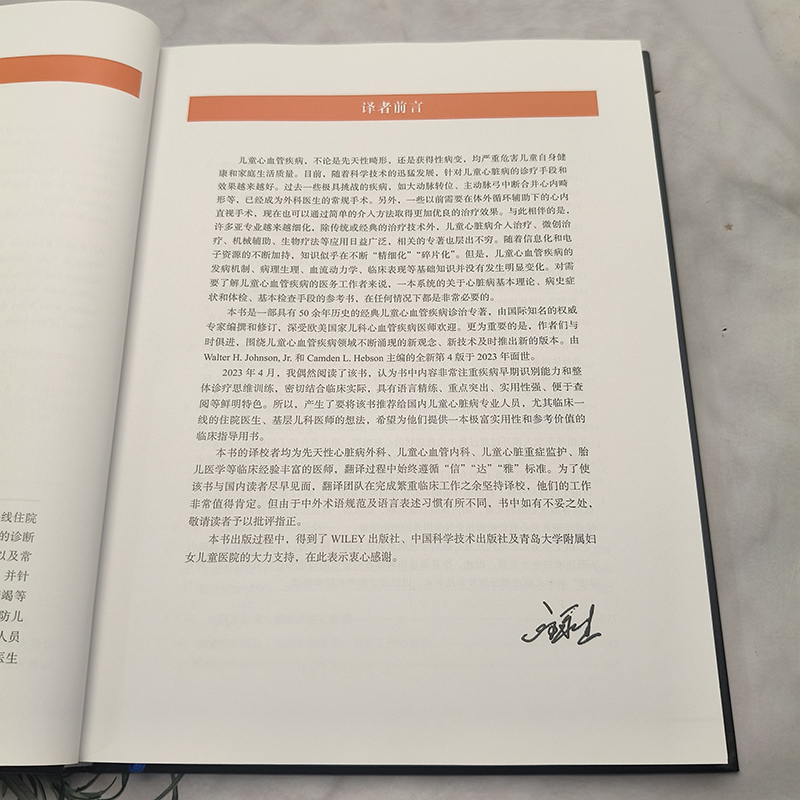 译者前言
儿童心血管疾病，不论是先天性畸形，还是获得性病变，均严重危害儿童自身健
康和家庭生活质量。目前，随着科学技术的迅猛发展，针对儿童心脏病的诊疗手段和
效果越来越好。过去一些极具挑战的疾病，如大动脉转位、主动脉弓中断合并心内畸
形等，已经成为外科医生的常规手术。另外，一些以前需要在体外循环辅助下的心内
直视手术，现在也可以通过简单的介入方法取得更加优良的治疗效果。与此相伴的是，
许多亚专业越来越细化，除传统或经典的治疗技术外，儿童心脏病介入治疗、微创治
疗、机械辅助、生物疗法等应用日益广泛，相关的专著也层出不穷。随着信息化和电
子资源的不断加持，知识似乎在不断“精细化”“碎片化”。但是，儿童心血管疾病的
发病机制、病理生理、血流动力学、临床表现等基础知识并没有发生明显变化。对需
要了解儿童心血管疾病的医务工作者来说，一本系统的关于心脏病基本理论、病史症
状和体检、基本检查手段的参考书，在任何情况下都是非常必要的。
本书是一部具有 50 余年历史的经典儿童心血管疾病诊治专著，由国际知名的权威
专家编撰和修订，深受欧美国家儿科心血管疾病医师欢迎。更为重要的是，作者们与
时俱进，围绕儿童心血管疾病领域不断涌现的新观念、新技术及时推出新的版本。由
Walter H. Johnson, Jr. 和 Camden L. Hebson 主编的全新第 4 版于 2023 年面世。
2023 年 4 月，我偶然阅读了该书，认为书中内容非常注重疾病早期识别能力和整
体诊疗思维训练，密切结合临床实际，具有语言精练、重点突出、实用性强、便于查
阅等鲜明特色。所以，产生了要将该书推荐给国内儿童心脏病专业人员，尤其临床一
线的住院医生、基层儿科医师的想法，希望为他们提供一本极富实用性和参考价值的
临床指导用书。
本书的译校者均为先天性心脏病外科、儿童心血管内科、儿童心脏重症监护、胎
儿医学等临床经验丰富的医师，翻译过程中始终遵循“信”“达”“雅”标准。为了使
该书与国内读者尽早见面，翻译团队在完成繁重临床工作之余坚持译校，他们的工作
非常值得肯定。但由于中外术语规范及语言表述习惯有所不同，书中如有不妥之处，
敬请读者予以批评指正。
本书出版过程中，得到了 WILEY 出版社、中国科学技术出版社及青岛大学附属妇
女儿童医院的大力支持，在此表示衷心感谢。
线住院
的诊断
以及常
并针
竭等
防儿
人员
医生